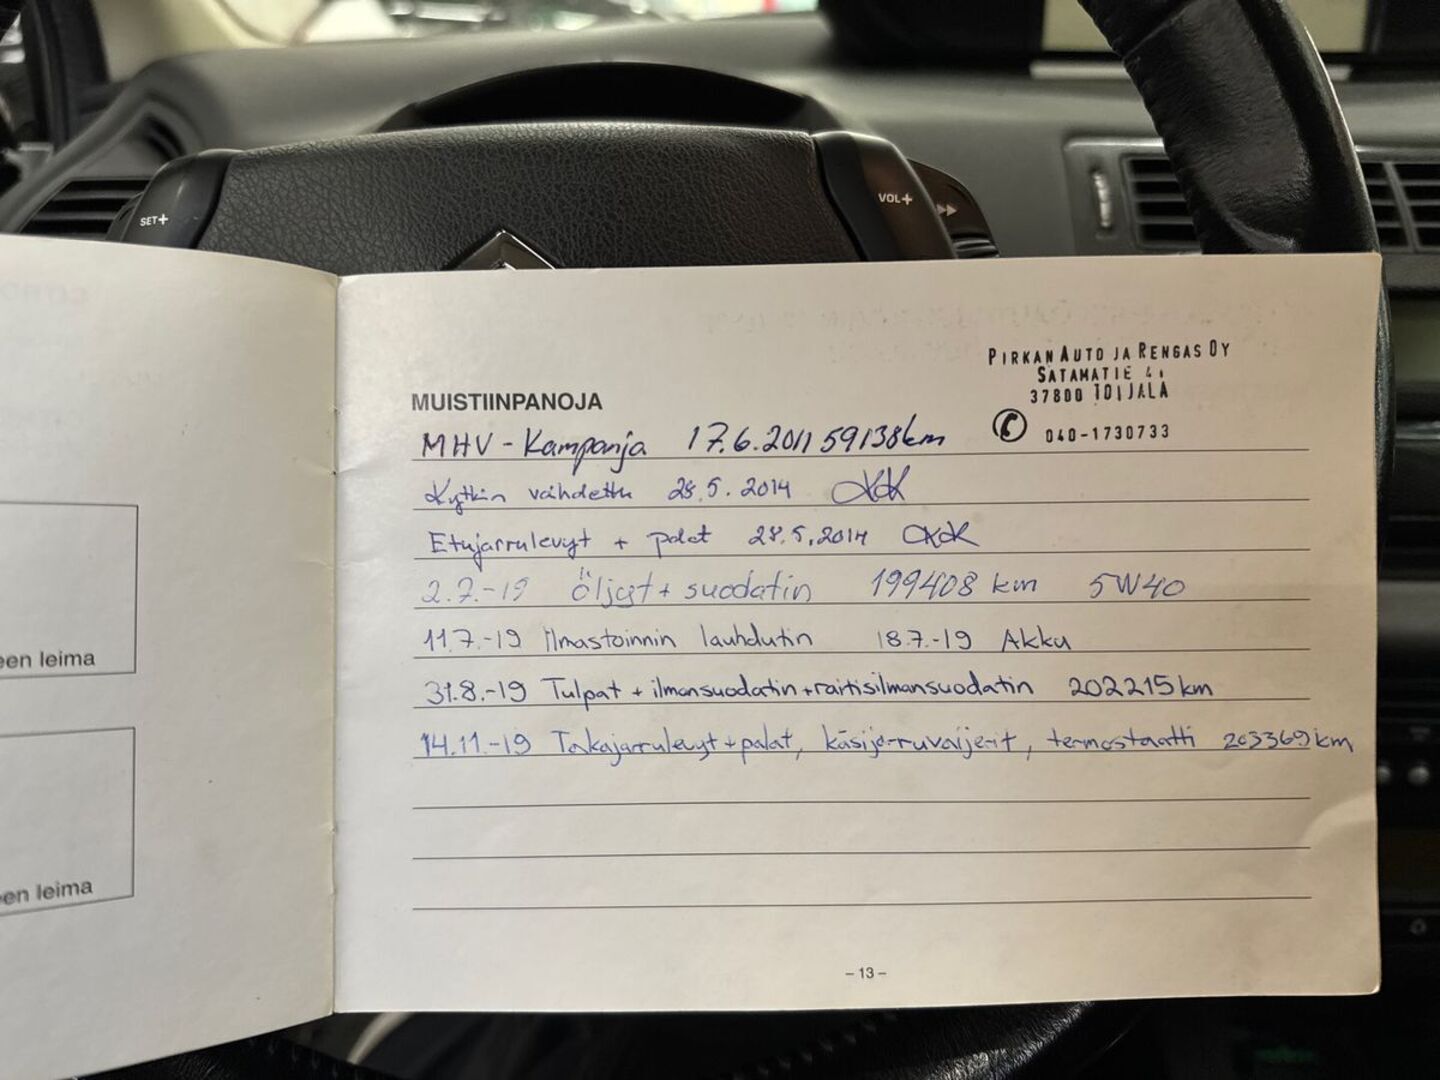 SET+
VOL+
PIRKAN AUTO JA RENGAS OY
SATAMATIE
37800 TOIJALA
040-1730733
MUISTIINPANOJA
MHV - Kampanja 17.6.2011 59138km
Kytkin vaihdettu 28.5.2014
Etujarrulevyt + palat 28.5.2014
2.7.-19 Öljyt + suodatin 199408 km 5W40
11.7.-19 Ilmastoinnin lauhdutin 18.7.-19 Akku
31.8.-19 Tulpat + ilmansuodatin + raitisilmansuodatin 202215km
14.11.-19 Takajarrulevyt + palat, käsijarruvaijerit, termostaatti 203369km
een leima
een leima
- 13 -